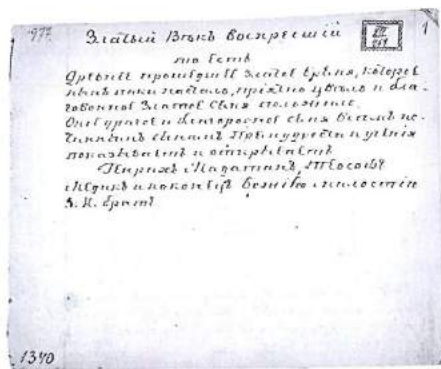 1
Златый Вѣкъ воскресшiй
то есть
Древнее прошедшее златое время, которое
нынѣ паки настало, прiятно цвѣло и бла-
говонное златое сѣмя
Оное драгое и благородное сѣмя всѣмъ ис-
тиннымъ сынамъ Премудрости и ученiя
показываетъ и открываетъ
Мадатанъ, Теософъ
Медикъ и наконецъ Божiею милостiю
З. К. братъ
1340